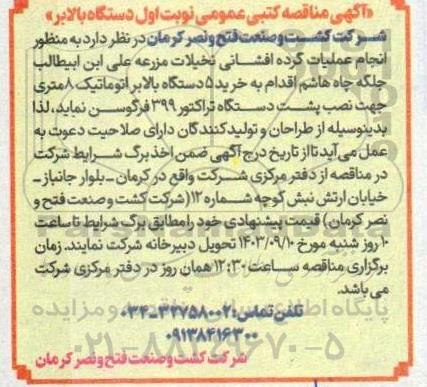 «آگهی مناقصه کتبی عمومی نوبت اول دستگاه بالابر»
شرکت کشت و صنعت فتح و نصر کرمان در نظر دارد به منظور
انجام عملیات گرده افشانی نخیلات مزرعه علی ابن ابیطالب
جلگه چاه هاشم اقدام به خرید ۵ دستگاه بالابر اتوماتیک ۸ متری
جهت نصب پشت دستگاه تراکتور ۳۹۹ فرگوسن نماید، لذا
بدینوسیله از طراحان و تولیدکنندگان دارای صلاحیت دعوت به
عمل می‌آید تا از تاریخ درج آگهی ضمن اخذ برگ شرایط شرکت
در مناقصه از دفتر مرکزی شرکت واقع در کرمان - بلوار جانباز -
خیابان ارتش نبش کوچه شماره ۱۲ (شرکت کشت و صنعت فتح و
نصر کرمان) قیمت پیشنهادی خود را مطابق برگ شرایط تا ساعت
۱۰ روز شنبه مورخ ۱۴۰۳/۰۹/۱۰ تحویل دبیرخانه شرکت نمایند. زمان
برگزاری مناقصه ساعت ۱۲:۳۰ همان روز در دفتر مرکزی شرکت
می باشد.
تلفن تماس: ۳۲۷۵۸۰۰۲-۰۳۴
۰۹۱۳۸۴۱۶۳۰۰
شرکت کشت و صنعت فتح و نصر کرمان